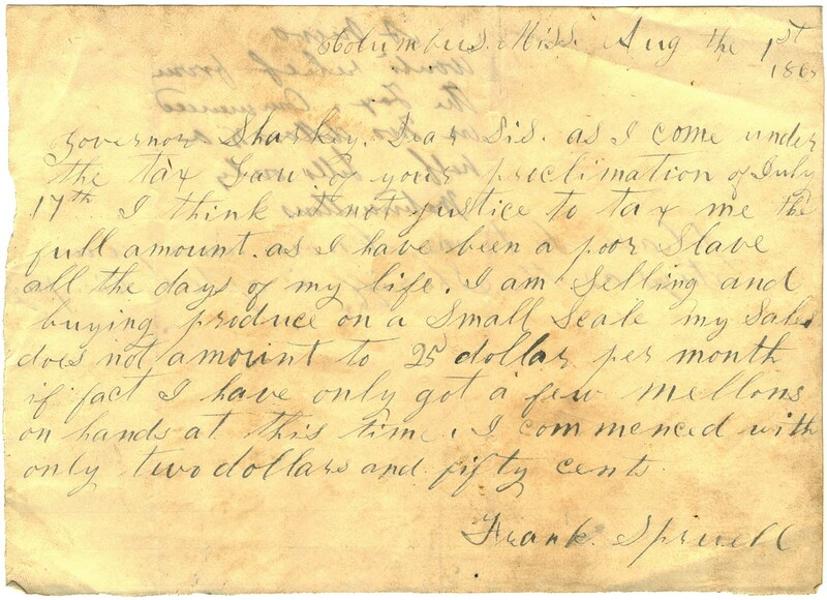 Columbus. Miss. Aug the 1st
186
Governor Sharkey. Dear Sis. as I come under
the tax Law of your proclimation of July
17th I think it not justice to tax me the
full amount. as I have been a poor Slave
all the days of my life. I am Selling and
buying produce on a Small Scale my Sales
does not amount to 25 dollar per month
if fact I have only got a few mellons
on hands at this time. I commenced with
only two dollars and fifty cents
Frank Spruell